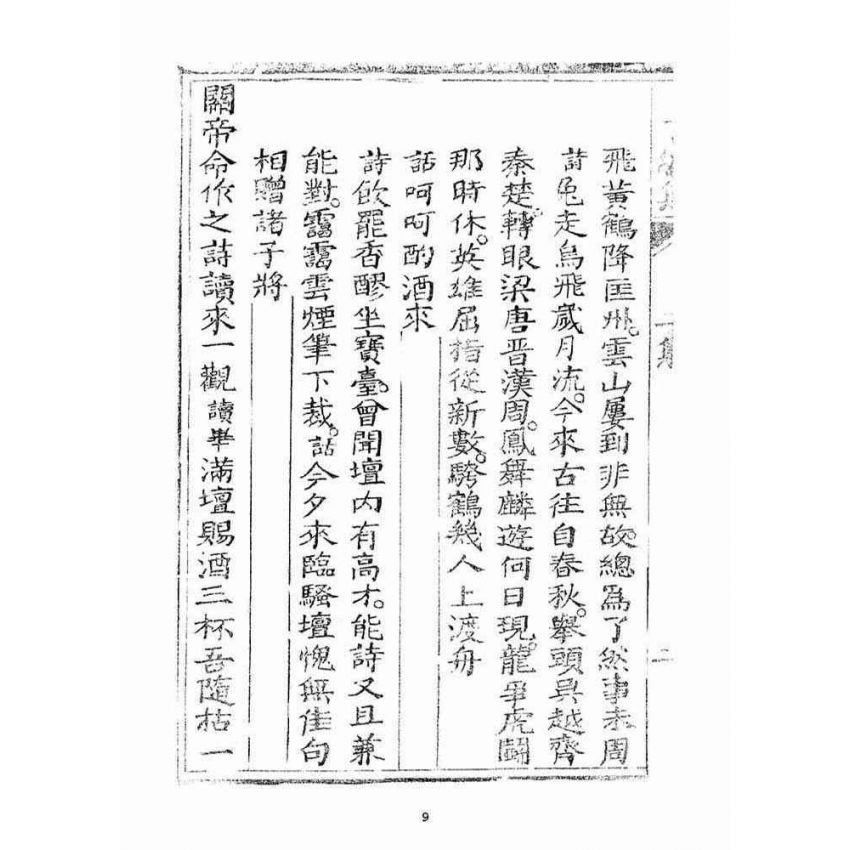 飛黃鶴降匡州。雲山屢到非無故。總為了然事未周
詩 兔走烏飛歲月流。今來古往自春秋。舉頭吳越齊
秦楚。轉眼梁唐晋漢周。鳳舞麟遊何日現。龍爭虎鬪
那時休。英雄屈指從新數。騎鶴幾人上渡舟
話呵呵酌酒來
詩飲罷香醪坐寶臺。曾聞壇內有高才。能詩又且兼
能對。靄靄雲煙筆下裁。話今夕來臨騷壇愧無佳句
相贈諸子將
關帝命作之詩讀來一觀讀畢滿壇賜酒三杯吾隨枯一
二
9